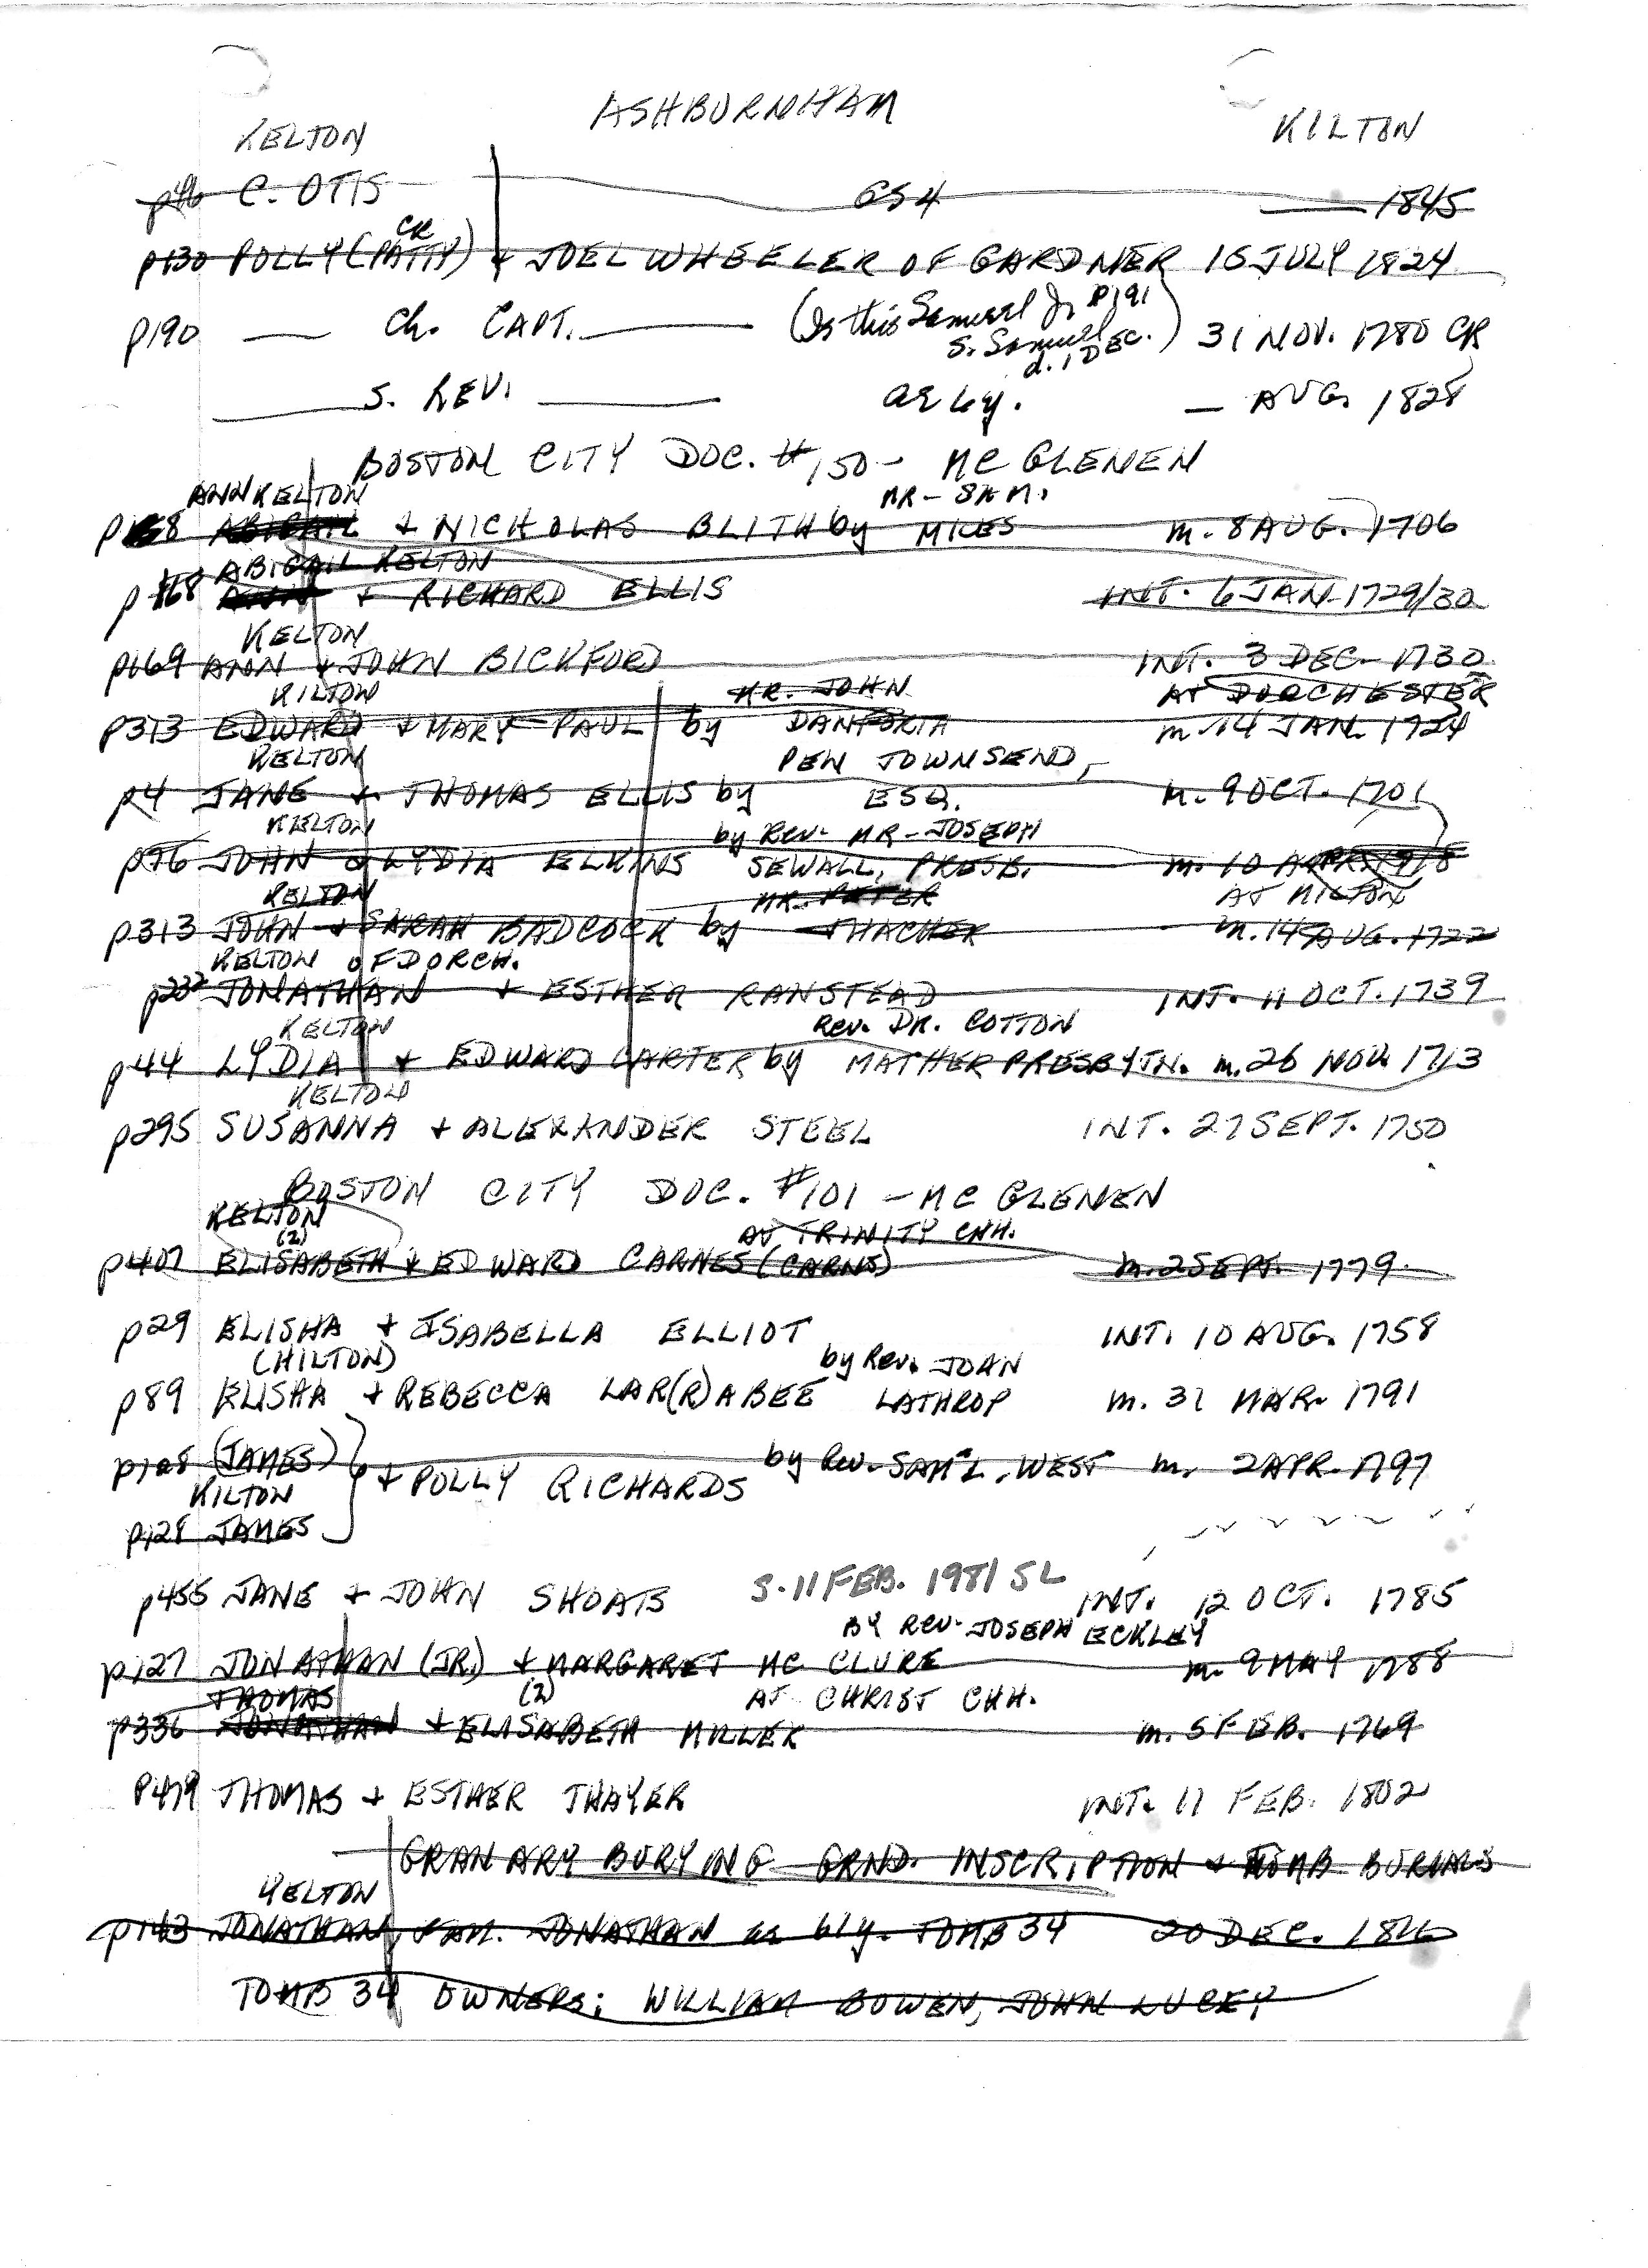 ASHBURNHAM
KELTON KILTON
p46 C. OTIS GS4 — 1845
CR
p130 POLLY (PATTY) + JOEL WHEELER OF GARDNER 15 JULY 1824
p190 — Ch. CAPT. — (Is this Samuel Jr P191 S. Samuel d. 1 DEC.) 31 NOV. 1780 CR
— S. REV. — ae 6y. — AUG. 1828
BOSTON CITY DOC. #150 - MC GLENEN
ANN KELTON MR - SAM.
p8 ABIGAIL + NICHOLAS BLITH by MILES m. 8 AUG. 1706
ABIGAIL KELTON
p168 ANN + RICHARD ELLIS INT. 6 JAN 1729/30
KELTON
p169 ANN + JOHN BICKFORD INT. 3 DEC - 1730
KILTON MR. JOHN AT DORCHESTER
p313 EDWARD + MARY PAUL by DANFORTH m. 14 JAN. 1724
KELTON PEN TOWNSEND,
p4 JANE + THOMAS ELLIS by ESQ. m. 9 OCT. 1701
KELTON by Rev. MR - JOSEPH
p76 JOHN & LYDIA ELKINS SEWALL, PRESB. m. 10 APR. 1718
KELTON MR. PETER AT MILTON
p313 JOHN + SARAH BADCOCK by THACHER m. 14 AUG. 1722
KELTON OF DORCH.
p232 JONATHAN + ESTHER RANSTEAD INT. 11 OCT. 1739
KELTON Rev. DR. COTTON
p44 LYDIA + EDWARD CARTER by MATHER PRESBYTN. m. 26 NOV. 1713
KELTON
p295 SUSANNA + ALEXANDER STEEL INT. 27 SEPT. 1750
BOSTON CITY DOC. #101 - MC GLENEN
KELTON
(2) AT TRINITY CHH.
p407 ELISABETH + EDWARD CARNES (CARNS) m. 2 SEPT. 1779
p29 ELISHA + ISABELLA ELLIOT INT. 10 AUG. 1758
(HILTON) by Rev. JOHN
p89 ELISHA + REBECCA LAR(R)ABEE LATHROP m. 31 MAR. 1791
p128 (JAMES) by Rev. SAM'L. WEST m. 2 APR. 1797
KILTON + POLLY RICHARDS
p128 JAMES
p455 JANE + JOHN SHOATS S. 11 FEB. 1981 SL INT. 12 OCT. 1785
BY REV. JOSEPH ECKLEY
p127 JONATHAN (JR.) + MARGARET MC CLURE m. 9 MAY 1788
THOMAS (2) AT CHRIST CHH.
p336 JONATHAN + ELISABETH MILLER m. 5 FEB. 1769
P479 THOMAS + ESTHER THAYER INT. 11 FEB. 1802
GRANARY BURYING GRND. INSCRIPTION + TOMB BURIALS
KELTON
p143 JONATHAN, JONATHAN ae 61y. TOMB 34 20 DEC. 1816
TOMB 34 OWNERS: WILLIAM BOWEN, JOHN LUCEY